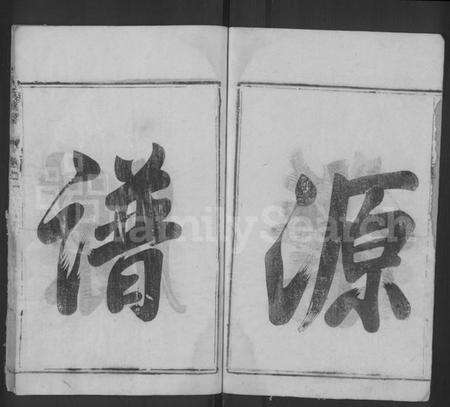 源
譜
FamilySearch